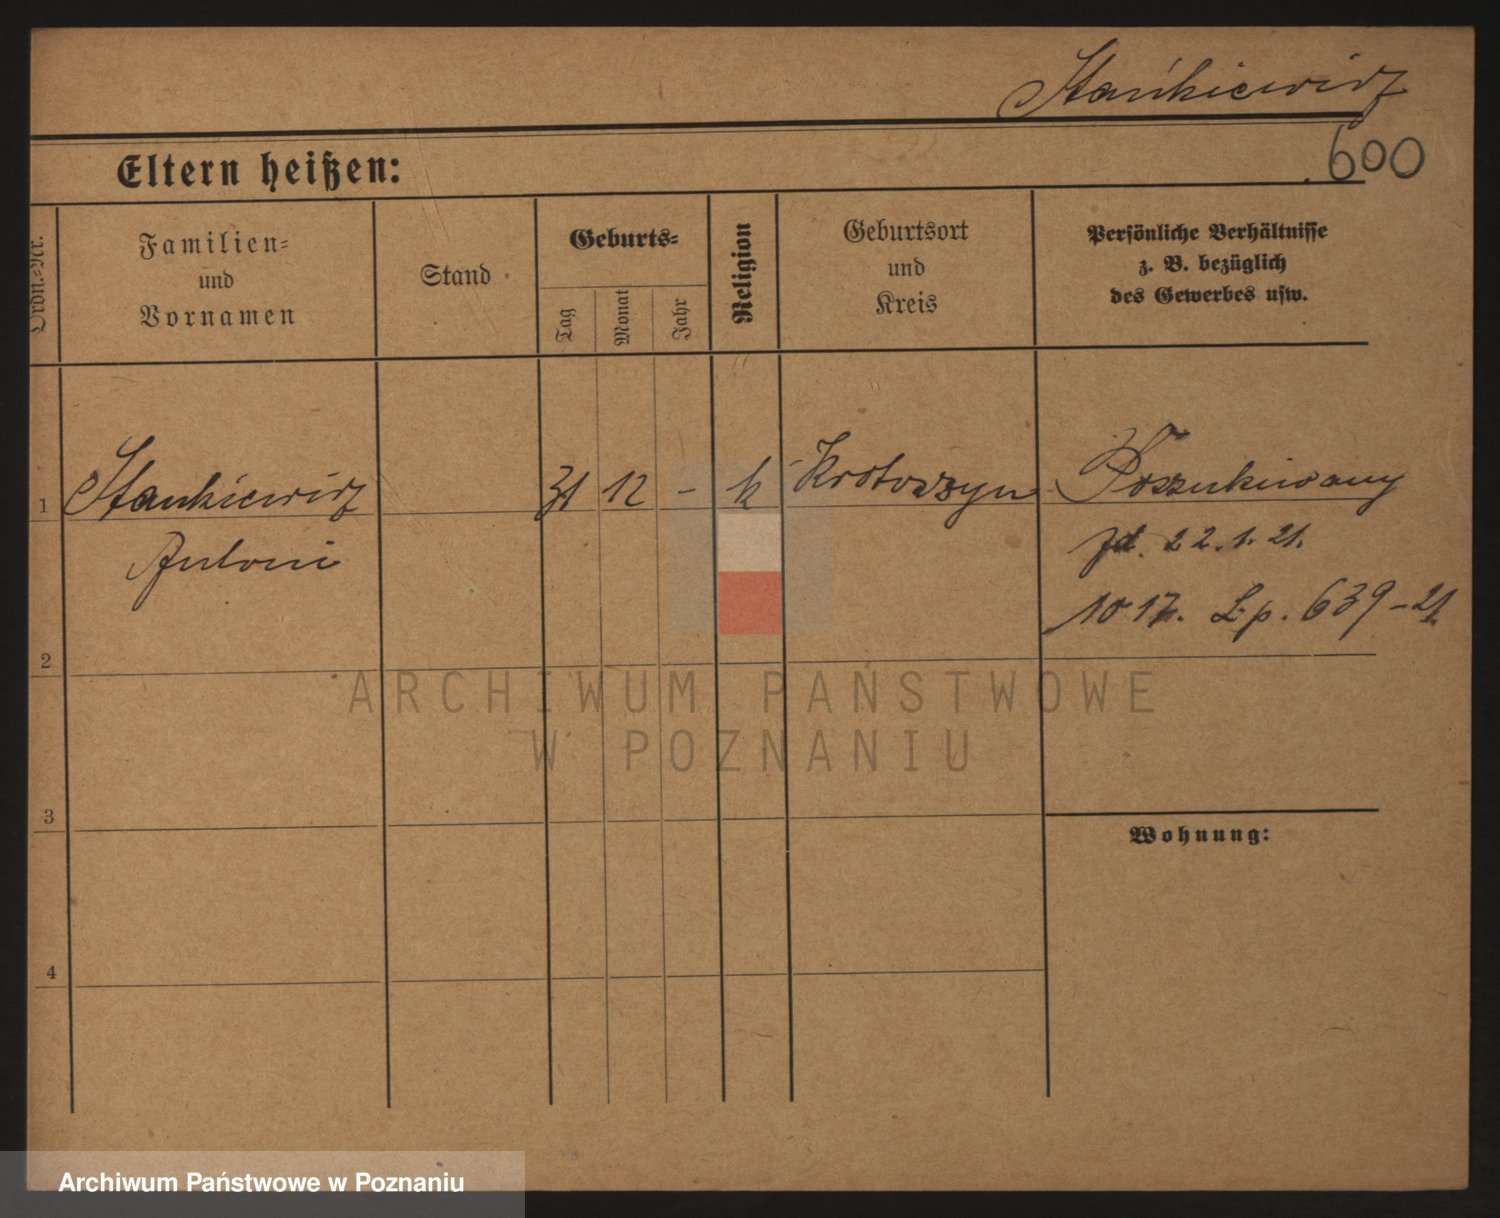 Stańkiewicz
600
Eltern heißen:
Ordn.=Nr.
Familien=
und
Vornamen
Stand
Geburts=
Tag
Monat
Jahr
Religion
Geburtsort
und
Kreis
Persönliche Verhältnisse
z. B. bezüglich
des Gewerbes usw.
1 Stankiewicz 31 12 – k Krotoszyn Poszukiwany
Antoni
zd. 22. 1. 21.
10 17. L.p. 639–21
2
3
4
Wohnung:
ARCHIWUM PAŃSTWOWE
W POZNANIU
Archiwum Państwowe w Poznaniu